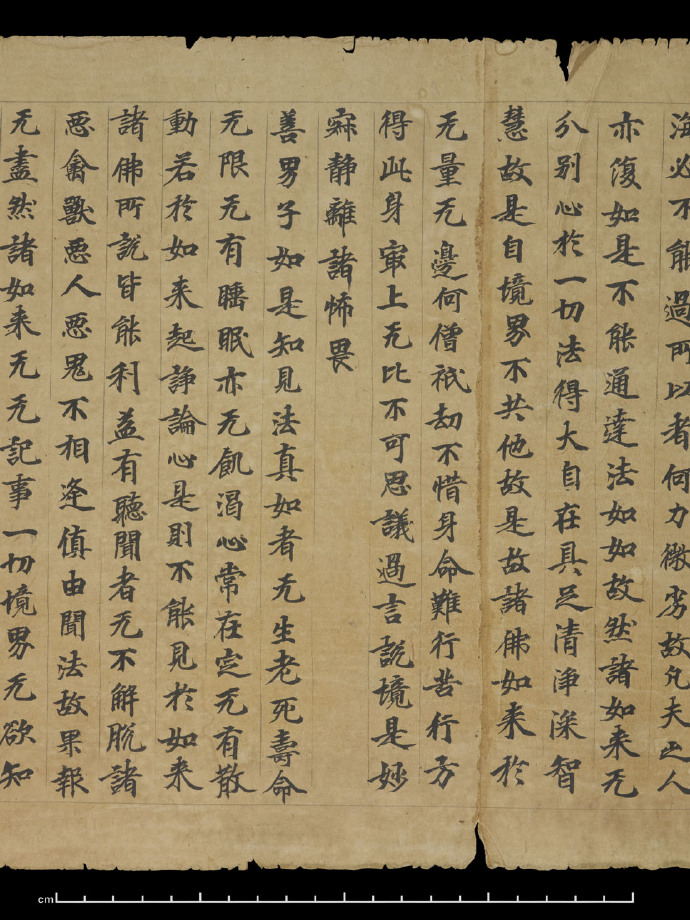 海必不能過所以者何力微劣故凡夫之人
亦復如是不能通達法如如故然諸如来无
分别心於一切法得大自在具足清淨深智
慧故是自境界不共他故是故諸佛如来於
无量无邊何僧祇劫不惜身命難行苦行方
得此身㝡上无比不可思議過言說境是妙
寂静離諸怖畏
善男子如是知見法真如者无生老死壽命
无限无有睡眠亦无飢渴心常在定无有散
動若於如来起諍論心是則不能見於如来
諸佛所說皆能利益有聽聞者无不解脫諸
惡禽獸惡人惡鬼不相逢值由聞法故果報
无盡然諸如来无无記事一切境界无欲知
cm